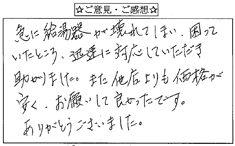 ☆ご意見・ご感想☆
急に給湯器が壊れてしまい、困って
いたところ、迅速に対応していただき
助かりました。また他店よりも価格が
安く、お願いして良かったです。
ありがとうございました。